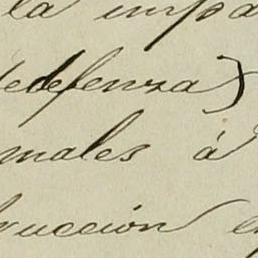 la impa
dedefenza)
males á
rucción e